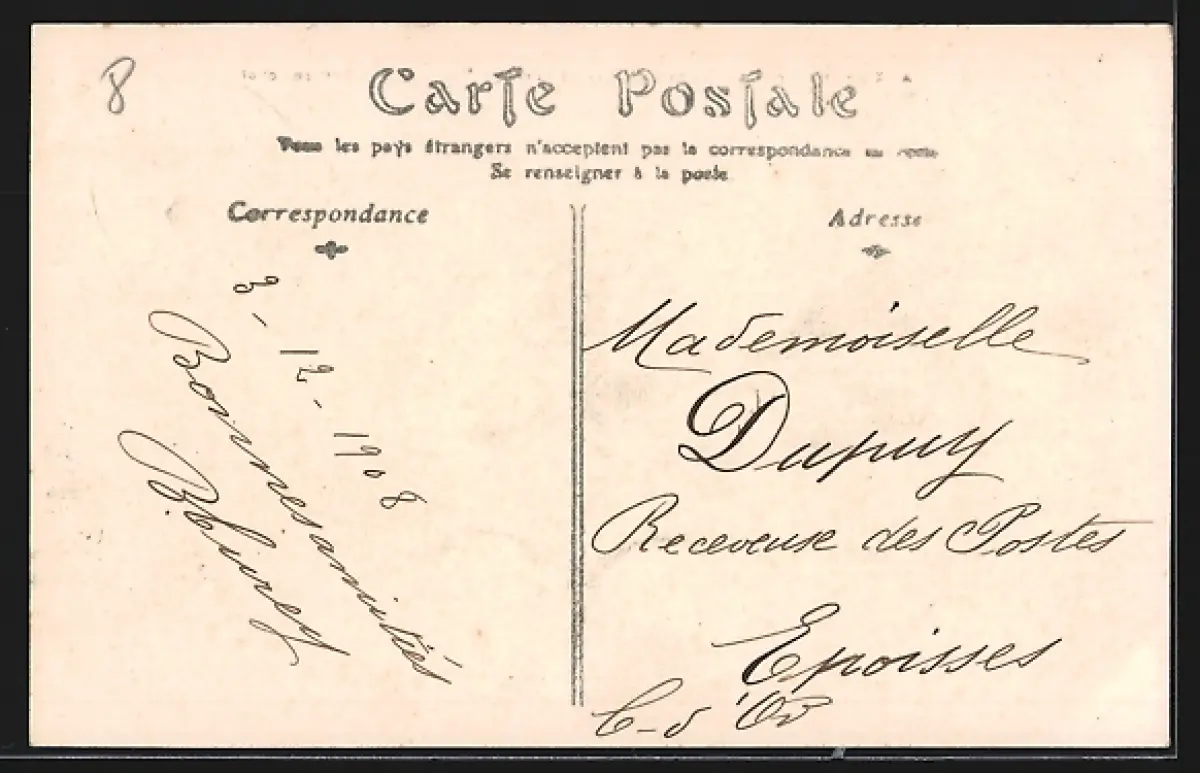 8
Carte Postale
Tous les pays étrangers n'acceptent pas la correspondance au recto
Se renseigner à la poste
Correspondance
3 - 12 - 1908
Bonnes amitiés
Adresse
Mademoiselle
Dupuy
Receveuse des Postes
Epoisses
C-d'Or